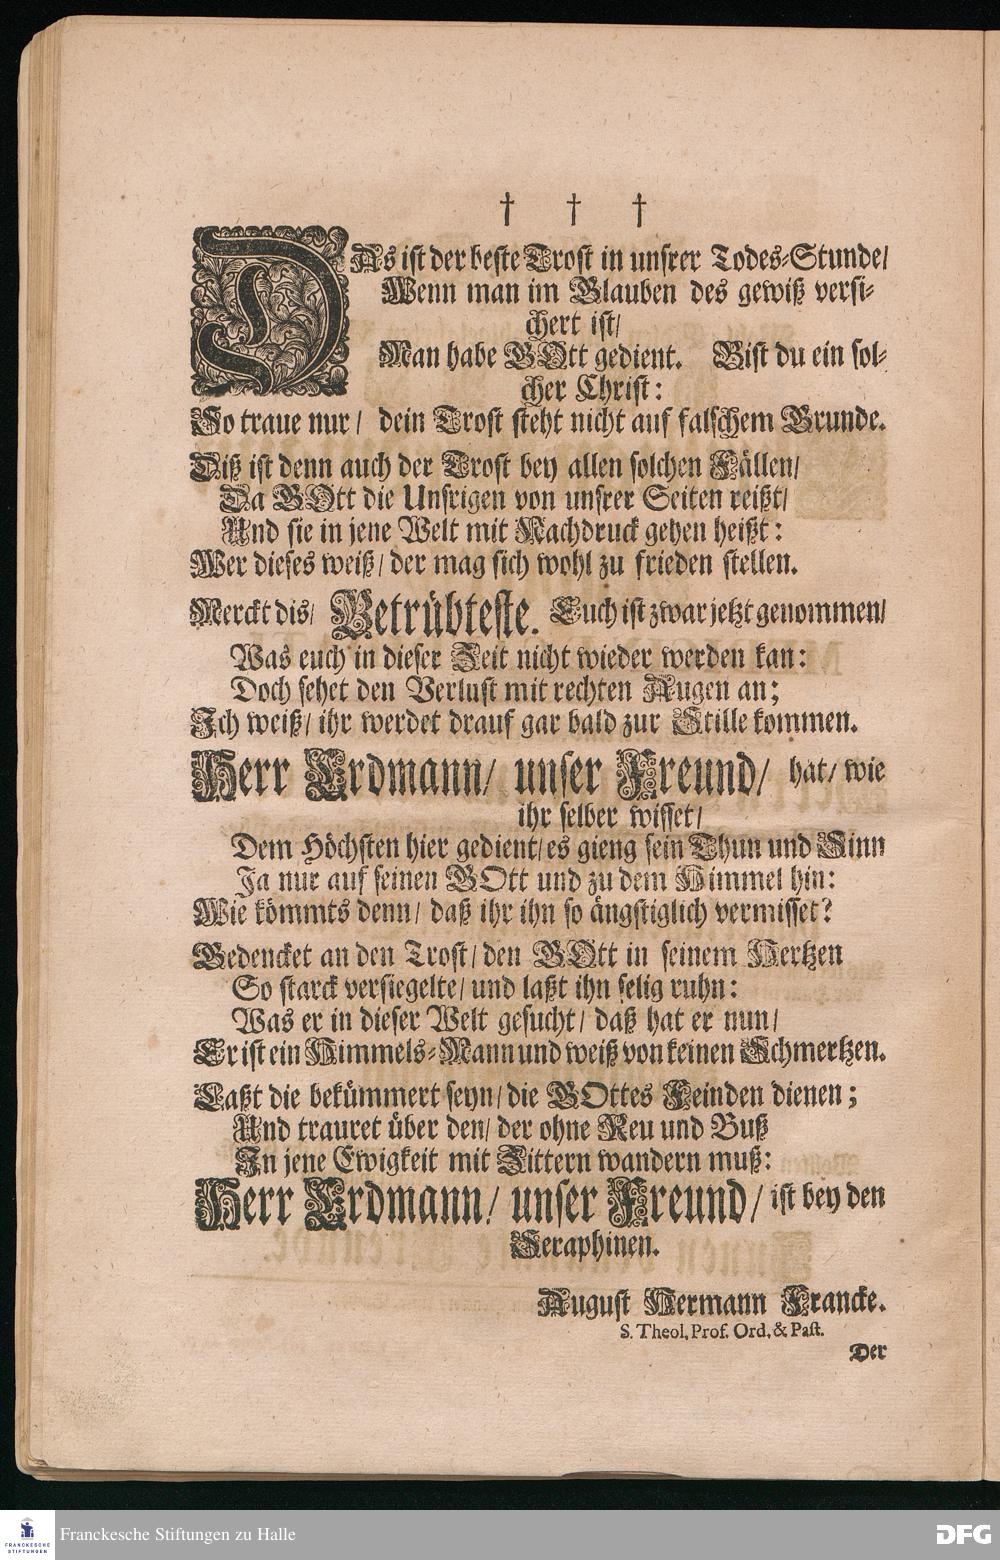 † † †
DAs ist der beste Trost in unsrer Todes-Stunde/
Wenn man im Glauben des gewiß versi-
chert ist/
Man habe GOtt gedient. Bist du ein sol-
cher Christ:
So traue nur/ dein Trost steht nicht auf falschem Grunde.
Diß ist denn auch der Trost bey allen solchen Fällen/
Da GOtt die Unsrigen von unsrer Seiten reißt/
Und sie in jene Welt mit Nachdruck gehen heißt:
Wer dieses weiß/ der mag sich wohl zu frieden stellen.
Merckt dis/ Betrübteste. Euch ist zwar jetzt genommen/
Was euch in dieser Zeit nicht wieder werden kan:
Doch sehet den Verlust mit rechten Augen an;
Ich weiß/ ihr werdet drauf gar bald zur Stille kommen.
Herr Erdmann/ unser Freund/ hat/ wie
ihr selber wisset/
Dem Höchsten hier gedient/ es gieng sein Thun und Sinn
Ja nur auf seinen GOtt und zu dem Himmel hin:
Wie kömmts denn/ daß ihr ihn so ängstiglich vermisset?
Gedencket an den Trost/ den GOtt in seinem Hertzen
So starck versiegelte/ und laßt ihn selig ruhn:
Was er in dieser Welt gesucht/ daß hat er nun/
Er ist ein Himmels-Mann und weiß von keinen Schmertzen.
Laßt die bekümmert seyn/ die GOttes Feinden dienen;
Und trauret über den/ der ohne Reu und Buß
In jene Ewigkeit mit Zittern wandern muß:
Herr Erdmann/ unser Freund/ ist bey den
Seraphinen.
August Hermann Francke.
S. Theol. Prof. Ord. & Past.
Der
FRANCKESCHE
STIFTUNGEN
Franckesche Stiftungen zu Halle
DFG